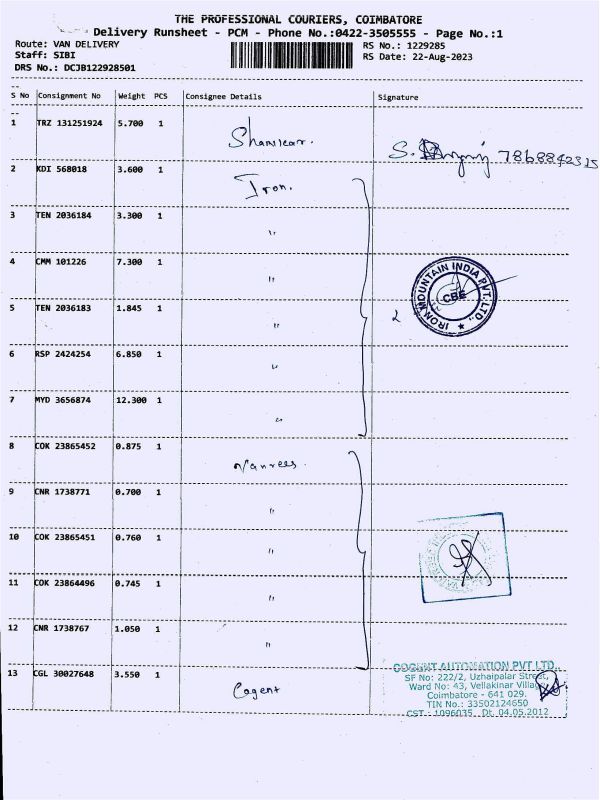 THE PROFESSIONAL COURIERS, COIMBATORE
Delivery Runsheet - PCM - Phone No.:0422-3505555 - Page No.:1
Route: VAN DELIVERY
Staff: SIBI
DRS No.: DCJB122928501
RS No.: 1229285
RS Date: 22-Aug-2023
S No Consignment No Weight PCS Consignee Details Signature
1 TRZ 131251924 5.700 1 Shankar.
S. 7868842315
2 KDI 568018 3.600 1 Iron.
3 TEN 2036184 3.300 1 "
4 CMM 101226 7.300 1 "
IRON MOUNTAIN INDIA PVT. LTD.,
CBE
5 TEN 2036183 1.845 1 "
6 RSP 2424254 6.850 1 "
7 MYD 3656874 12.300 1 "
8 COK 23865452 0.875 1
9 CNR 1738771 0.700 1 "
10 COK 23865451 0.760 1 "
11 COK 23864496 0.745 1 "
12 CNR 1738767 1.050 1 "
13 CGL 30027648 3.550 1 Cagent
COGENT AUTOMATION PVT LTD.,
SF No: 222/2, Uzhaipalar Street,
Ward No: 43, Vellakinar Village
Coimbatore - 641 029.
TIN No.: 33502124650
CST.: 1096035 Dt. 04.05.2012